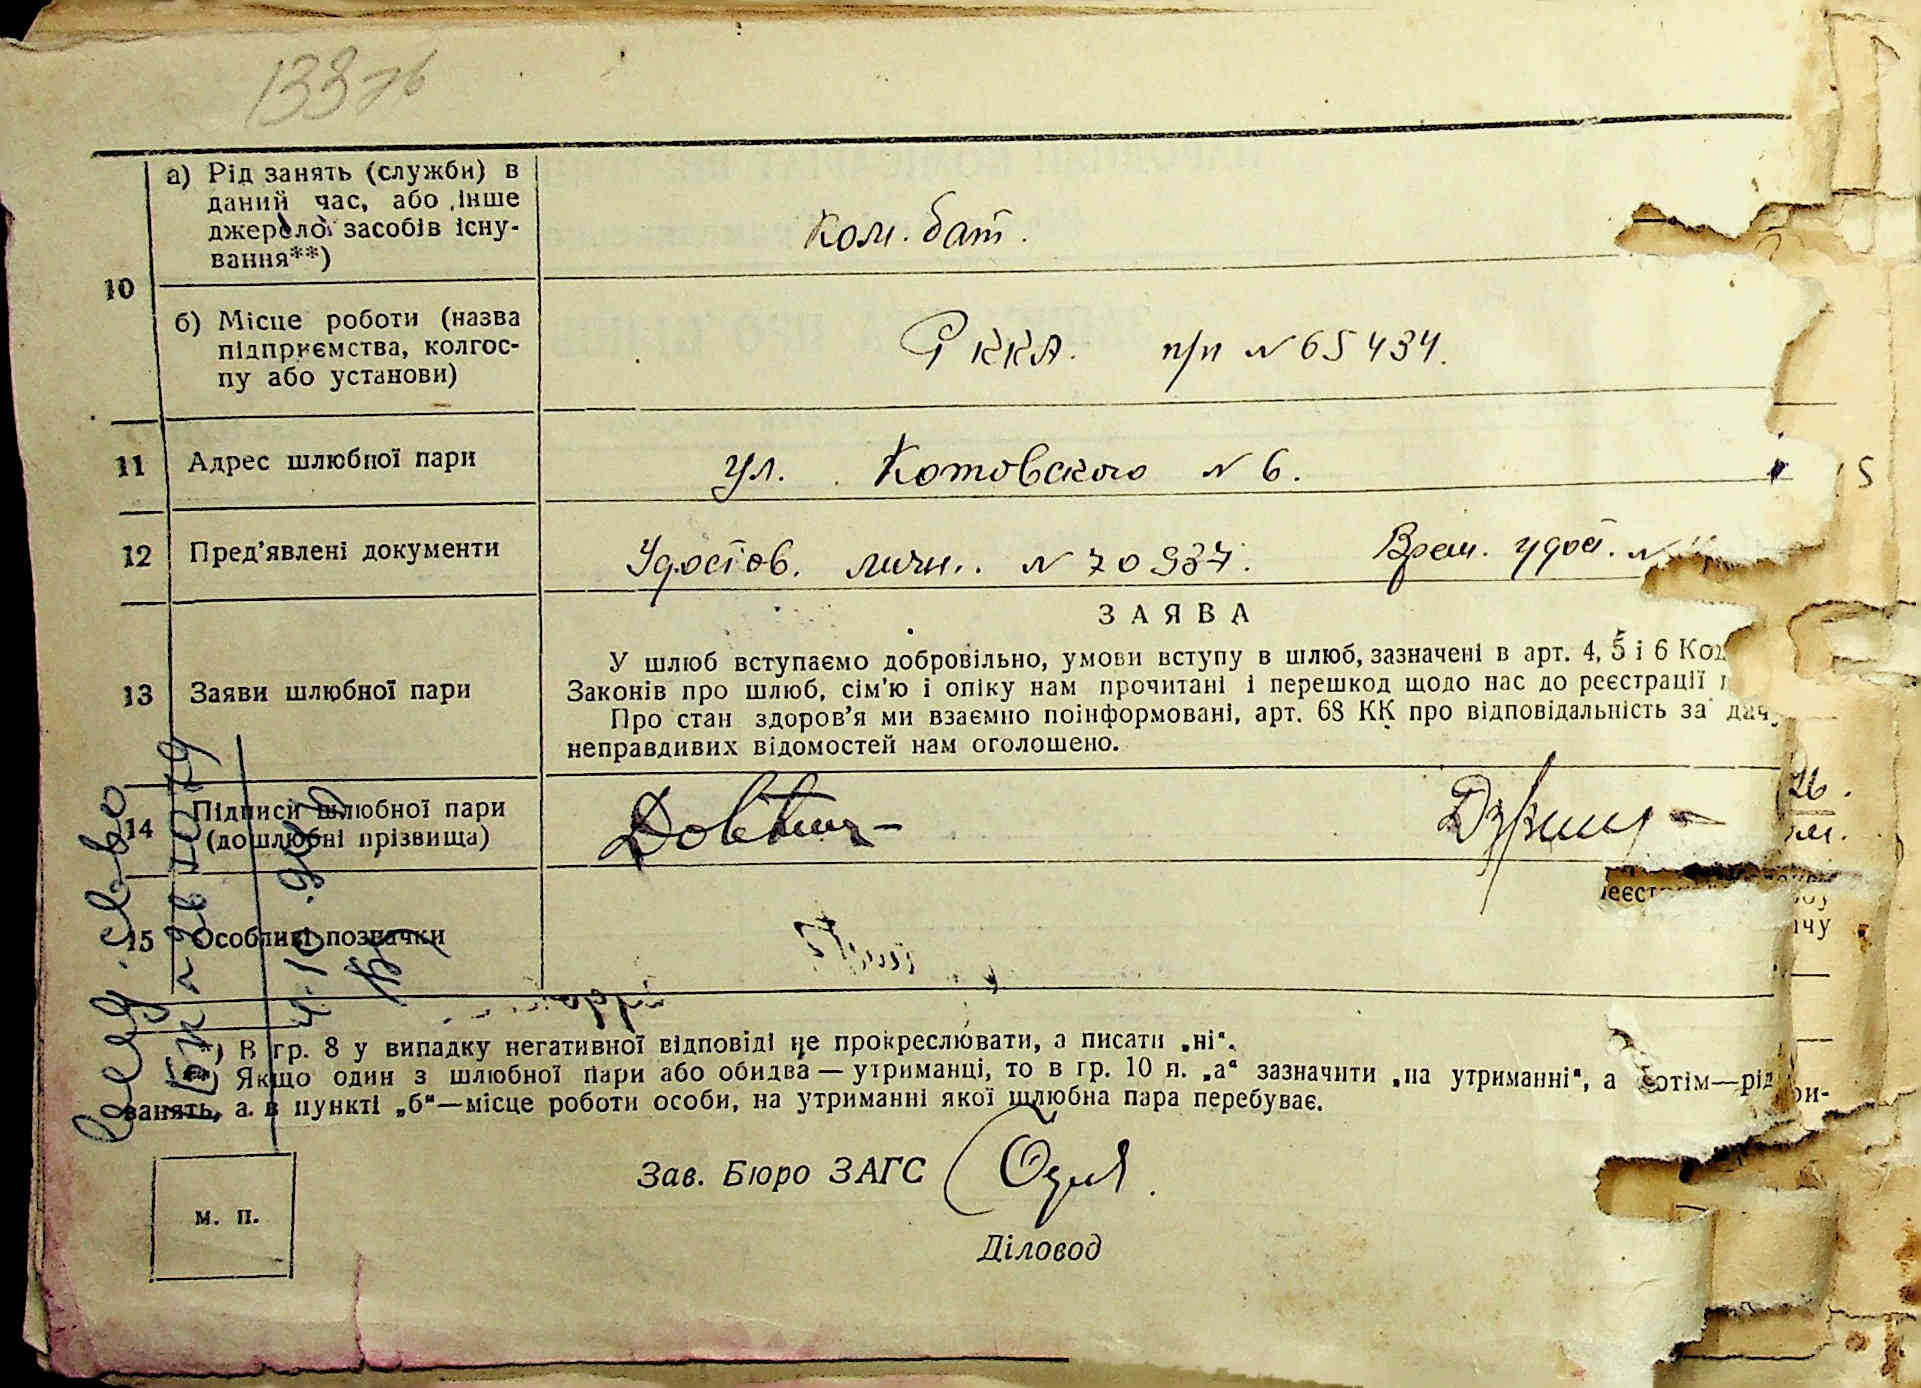 133
10
а) Рід занять (служби) в
даний час, або інше
джерело засобів існу-
вання**)
Ком. бат.
б) Місце роботи (назва
підприємства, колгос-
пу або установи)
РККА. п/п № 65434.
11 Адрес шлюбної пари
ул. Котовского № 6.
12 Пред'явлені документи
Удостов. личн. № 70937. Врем. удост. №
13 Заяви шлюбної пари
ЗАЯВА
У шлюб вступаємо добровільно, умови вступу в шлюб, зазначені в арт. 4, 5 і 6
Законів про шлюб, сім'ю і опіку нам прочитані і перешкод щодо нас до реєстрації
Про стан здоров'я ми взаємно поінформовані, арт. 68 КК про відповідальність за
неправдивих відомостей нам оголошено.
14 Підписи шлюбної пари
(дошлюбні прізвища)
15 Особливі позначки
*) В гр. 8 у випадку негативної відповіді не прокреслювати, а писати „ні“.
**) Якщо один з шлюбної пари або обидва — утриманці, то в гр. 10 п. „а“ зазначити „на утриманні“, а потім—рід
занять, а в пункті „б“—місце роботи особи, на утриманні якої шлюбна пара перебуває.
Зав. Бюро ЗАГС
Діловод
м. п.